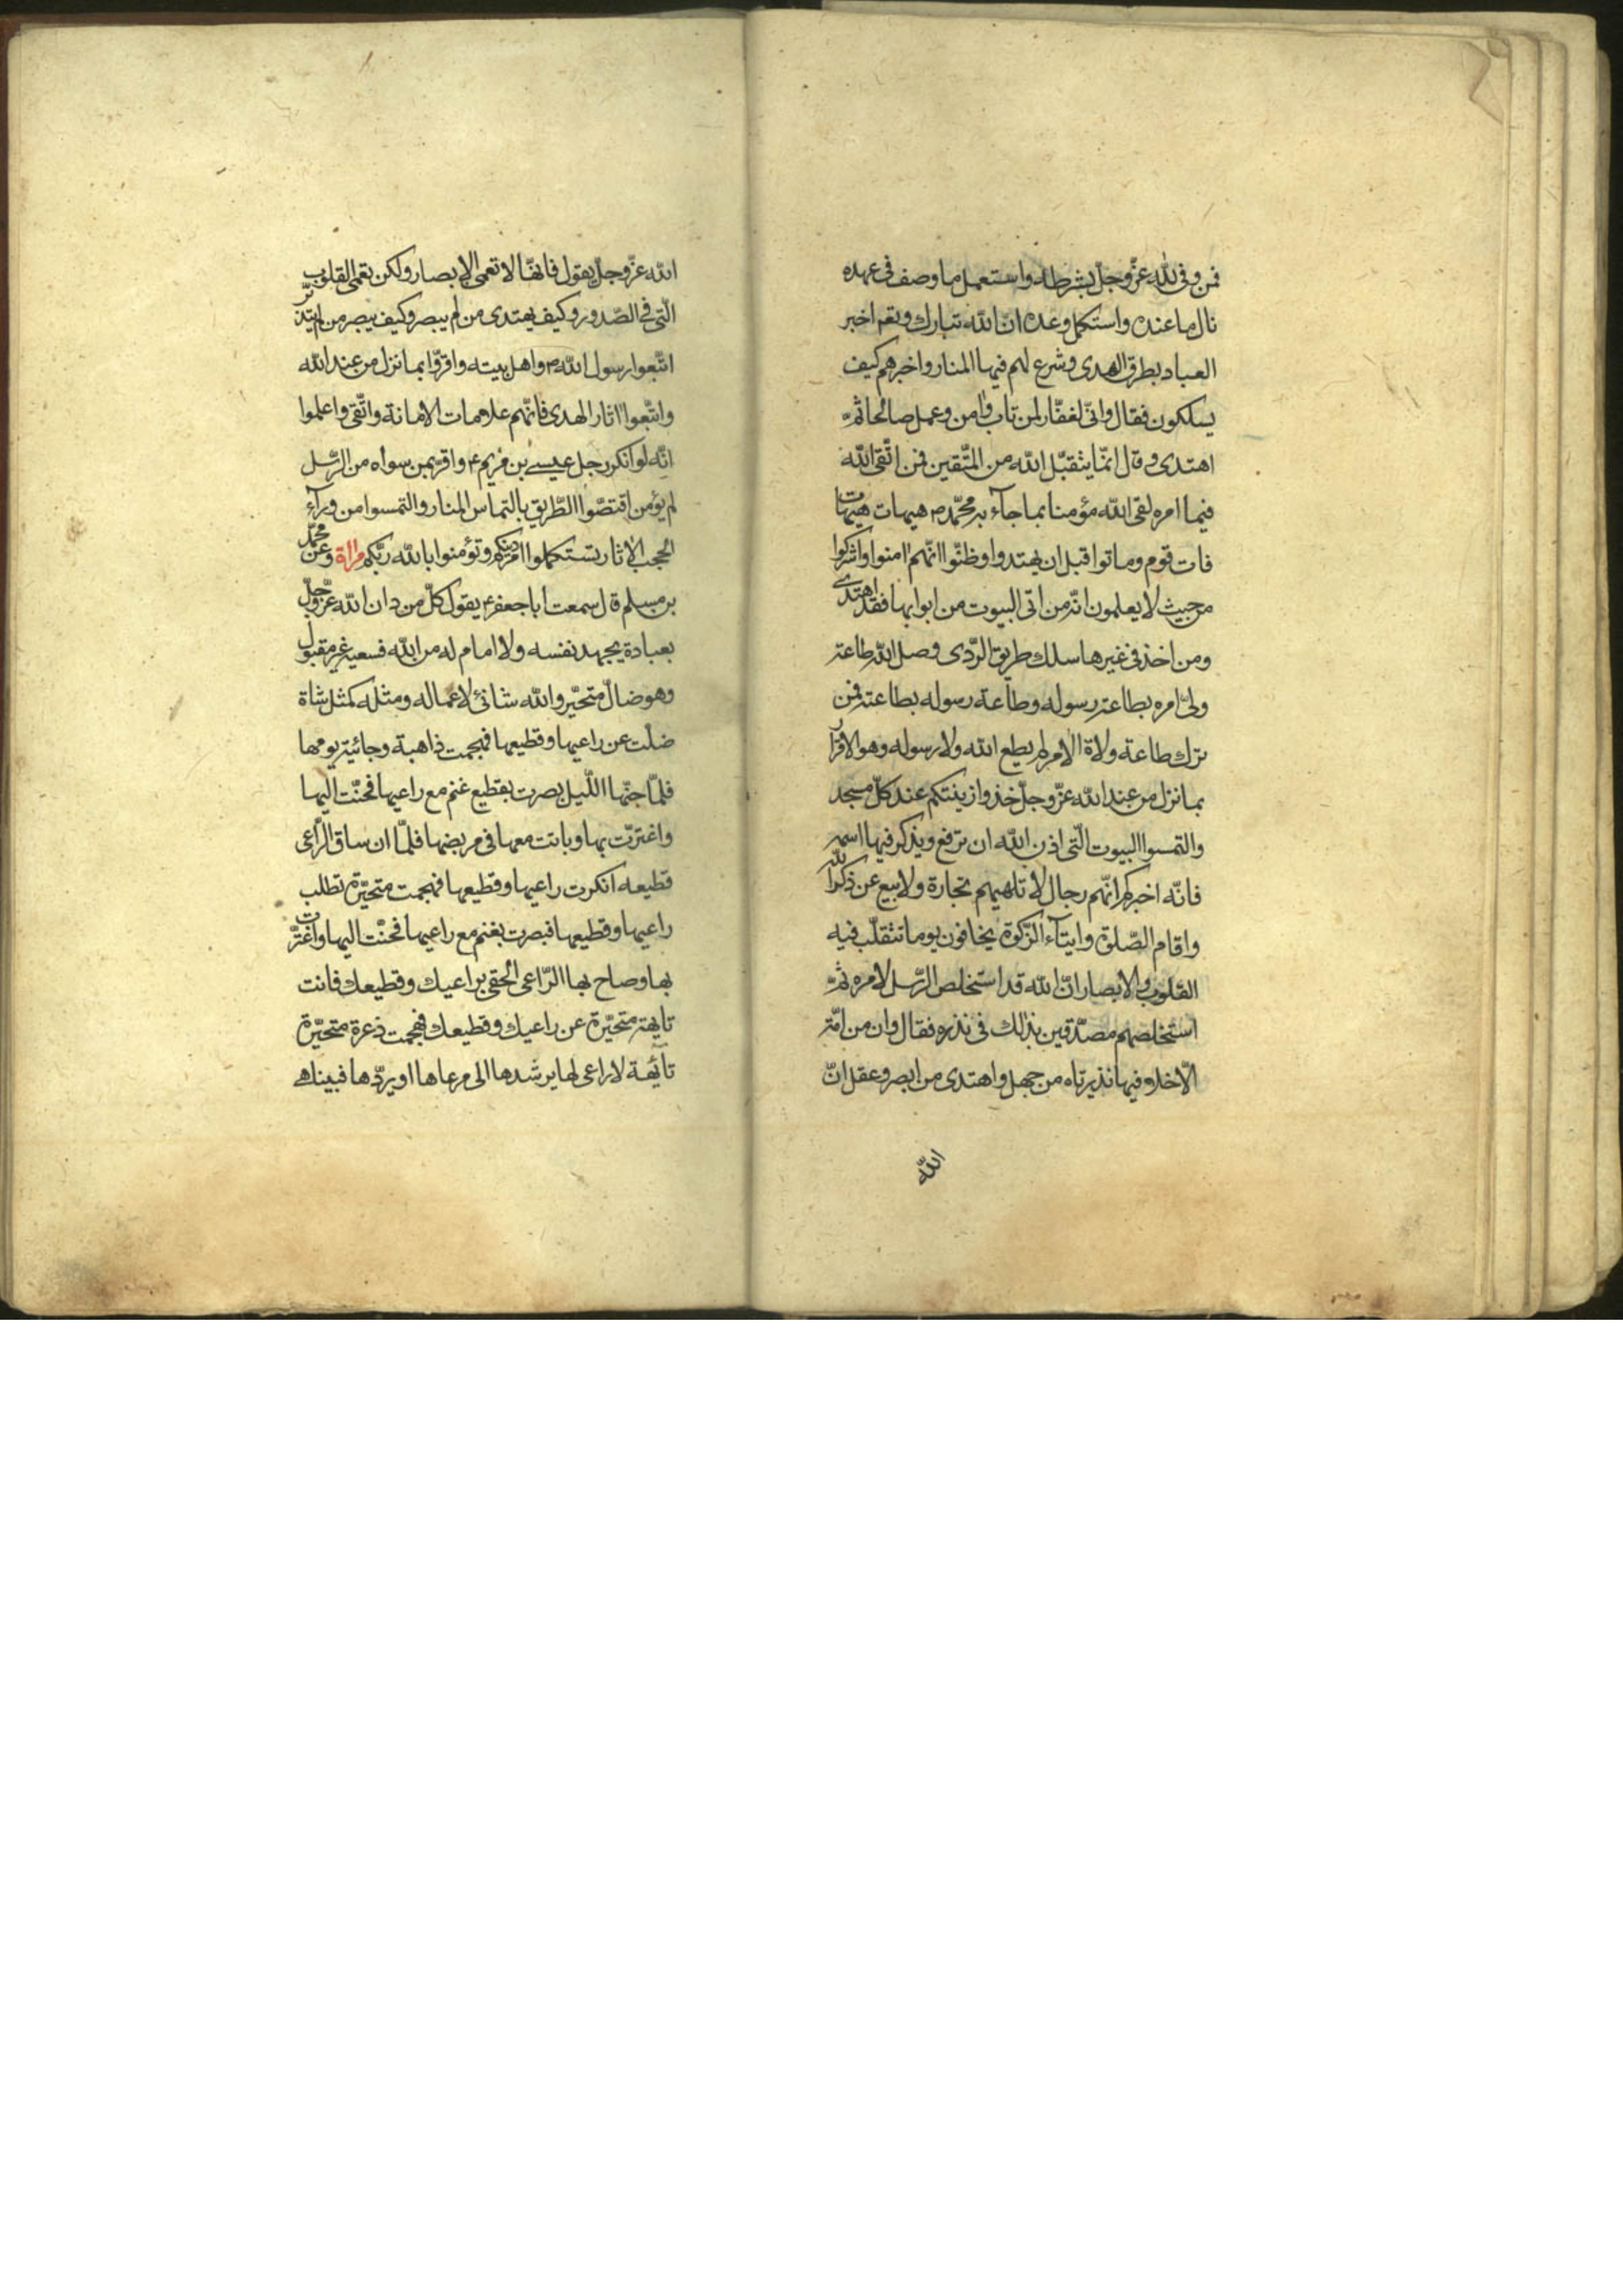 فمن وفى لله عزّ وجلّ بشرطه واستعمل ما وصف فى عهده
نال ما عنده واستكمل وعده انّ الله تبارك وتعم اخبر
العباد بطرق الهدى وشرع لهم فيها المنار واخبرهم كيف
يسلكون فقال وانّى لغفّار لمن تاب وامن وعمل صالحا ثمّ
اهتدى وقال انّما يتقبّل الله من المتّقين فمن اتّقى الله
فيما امره لقى الله مؤمنا بما جآء به محمّد ص هيهات هيهات
فات قوم وماتوا قبل ان يهتدوا وظنّوا انّهم امنوا واشركوا
من حيث لا يعلمون انّه من اتى البيوت من ابوابها فقد اهتدى
ومن اخذ فى غيرها سلك طريق الرّدى وصل الله طاعة
ولىّ امره بطاعة رسوله وطاعة رسوله بطاعته فمن
ترك طاعة ولاة الامر لم يطع الله ولا رسوله وهو الاقرار
بما نزل من عند الله عزّ وجلّ خذوا زينتكم عند كلّ مسجد
والتمسوا البيوت الّتى اذن الله ان ترفع ويذكر فيها اسمه
فانّه اخبركم انّهم رجال لا تلهيهم تجارة ولا بيع عن ذكر الله
واقام الصّلوة وايتآء الزّكوة يخافون يوما تتقلّب فيه
القلوب والابصار انّ الله قد استخلص الرّسل لامره ثمّ
استخلصهم مصدّقين بذلك فى نذره فقال وان من امّة
الّا خلا فيها نذير تاه من جهل واهتدى من ابصر وعقل انّ
الله
الله عزّ وجلّ يقول فانهّا لا تعمى الابصار ولكن تعمى القلوب
الّتى فى الصّدور وكيف يهتدى من لم يبصر وكيف يبصر من لم يتدبّر
اتّبعوا رسول الله ص واهل بيته واقرّوا بما نزل من عند الله
واتّبعوا اثار الهدى فانّهم علامات الامانة واتّقى واعلموا
انّه لو انكر رجل عيسى بن مريم ع واقرّ بمن سواه من الرّسل
لم يؤمن اقتصّوا الطّريق بالتماس المنار والتمسوا من ورآء
الحجب الاثار تستكملوا امر دينكم وتؤمنوا بالله ربّكم مراة وعن محمّد
بن مسلم قال سمعت ابا جعفر ع يقول كلّ من دان الله عزّ وجلّ
بعبادة يجهد نفسه ولا امام له من الله فسعيه غير مقبول
وهو ضالّ متحيّر والله شانئ لاعماله ومثله كمثل شاة
ضلّت عن راعيها وقطيعها فهجمت ذاهبة وجائية يومها
فلمّا جنّها اللّيل بصرت بقطيع غنم مع راعيها فحنّت اليها
واغترّت بها وباتت معها فى مربضها فلمّا ان ساق الرّاعى
قطيعه انكرت راعيها وقطيعها فهجمت متحيّرة تطلب
راعيها وقطيعها فبصرت بغنم مع راعيها فحنّت اليها واغترّت
بها وصاح بها الرّاعى الحقى براعيك وقطيعك فانت
تايهة متحيّرة عن راعيك وقطيعك فهجمت ذعرة متحيّرة
تآئهة لا راعى لها يرشدها الى مرعاها او يردّها فبينا هى